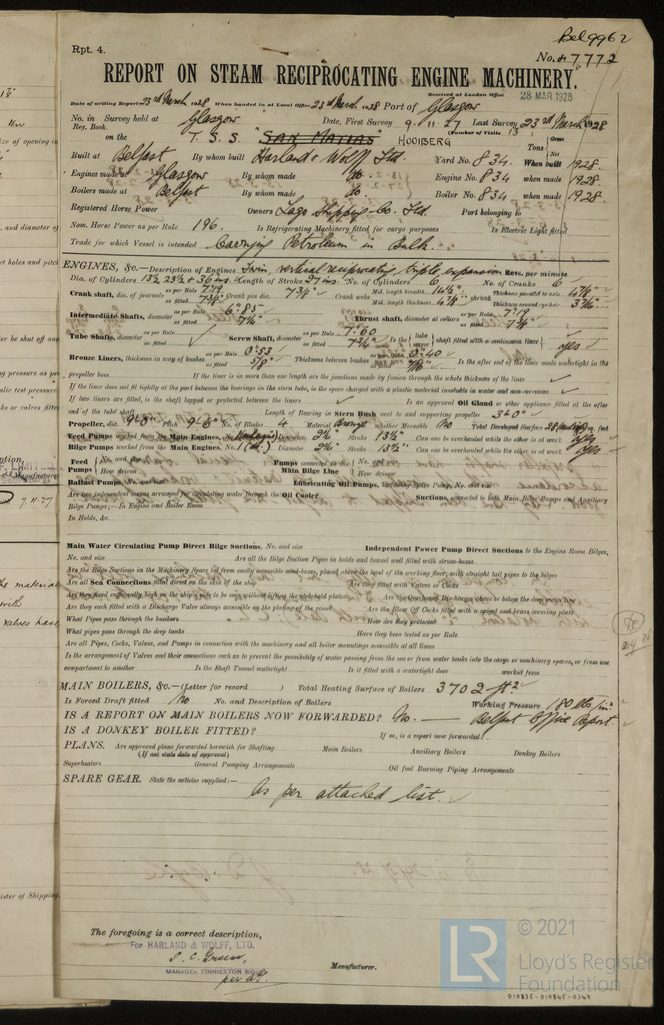 Bel 9962
Rpt. 4.
No. 47772
REPORT ON STEAM RECIPROCATING ENGINE MACHINERY.
Received at London Office 28 MAR 1928
Date of writing Report 23rd March 1928 When handed in at Local Office 23rd March 1928 Port of Glasgow
No. in Survey held at Glasgow Date, First Survey 9.11.27 Last Survey 23rd March 1928
Reg. Book. (Number of Visits 13)
on the T.S.S. "SAN MATIAS" HOOIBERG Tons Gross Net
Built at Belfast By whom built Harland & Wolff Ltd. Yard No. 834 When built 1928
Engines made at Glasgow By whom made Do. Engine No. 834 when made 1928
Boilers made at Belfast By whom made Do Boiler No. 834 when made 1928
Registered Horse Power Owners Lago Shipping Co. Ltd. Port belonging to
Nom. Horse Power as per Rule 196. Is Refrigerating Machinery fitted for cargo purposes Is Electric Light fitted
Trade for which Vessel is intended Carrying Petroleum in Bulk.
ENGINES, &c.—Description of Engines Twin vertical reciprocating triple expansion Revs. per minute
Dia. of Cylinders 13½, 23½ & 36 ins. Length of Stroke 27 ins. No. of Cylinders 6 No. of Cranks 6
Crank shaft, dia. of journals as per Rule 7.19 as fitted 7¾" Crank pin dia. 7¾" Crank webs Mid. length breadth 14½" Mid. length thickness 4⅞" shrunk Thickness parallel to axis 4⅞" Thickness around eye-hole
Intermediate Shafts, diameter as per Rule 6.85 as fitted Thrust shaft, diameter at collars as per Rule 7.19 as fitted
Tube Shafts, diameter as fitted Screw Shaft, diameter as per Rule 7.60 as fitted 7¾" Is the tube screw shaft fitted with a continuous liner yes
Bronze Liners, thickness in way of bushes as per Rule 0.53 as fitted 5/8" Thickness between bushes as per Rule 0.40 as fitted 7/16" Is the after end of the liner made watertight in the
propeller boss If the liner is in more than one length are the junctions made by fusion through the whole thickness of the liner
If the liner does not fit tightly at the part between the bearings in the stern tube, is the space charged with a plastic material insoluble in water and non-corrosive
If two liners are fitted, is the shaft lapped or protected between the liners Is an approved Oil Gland or other appliance fitted at the after
end of the tube shaft Length of Bearing in Stern Bush next to and supporting propeller 34.0"
Propeller, dia. 9'-0" Pitch 9'-6" No. of Blades 4 Material Bronze whether Moveable No Total Developed Surface 28 sq. feet
Feed Pumps worked from the Main Engines, No. Diameter 2¾" Stroke 13½" Can one be overhauled while the other is at work yes
Bilge Pumps worked from the Main Engines, No. Diameter 2¾" Stroke 13½" Can one be overhauled while the other is at work yes
Feed Pumps No. and size How driven Pumps connected to the Main Bilge Line No. and size How driven
Ballast Pumps, No. and size Lubricating Oil Pumps, including Spare Pump, No. and size
Are two independent means arranged for circulating water through the Oil Cooler Suctions, connected to both Main Bilge Pumps and Auxiliary
Bilge Pumps;—In Engine and Boiler Room
In Holds, &c.
Main Water Circulating Pump Direct Bilge Suctions, No. and size Independent Power Pump Direct Suctions to the Engine Room Bilges,
No. and size Are all the Bilge Suction Pipes in holds and tunnel well fitted with strum-boxes
Are the Bilge Suctions in the Machinery Space led from easily accessible mud-boxes, placed above the level of the working floor, with straight tail pipes to the bilges
Are all Sea Connections fitted direct on the skin of the ship Are they fitted with Valves or Cocks
Are they fixed sufficiently high on the ship's side to be seen without lifting the stokehold plates Are the Overboard Discharges above or below the deep water line
Are they each fitted with a Discharge Valve always accessible on the plating of the vessel Are the Blow Off Cocks fitted with a spigot and brass covering plate
What Pipes pass through the bunkers How are they protected
What pipes pass through the deep tanks Have they been tested as per Rule
Are all Pipes, Cocks, Valves, and Pumps in connection with the machinery and all boiler mountings accessible at all times
Is the arrangement of Valves and their connections such as to prevent the possibility of water passing from the sea or from water tanks into the cargo or machinery spaces, or from one
compartment to another Is the Shaft Tunnel watertight Is it fitted with a watertight door worked from
MAIN BOILERS, &c.—(Letter for record ) Total Heating Surface of Boilers 3702 ft.²
Is Forced Draft fitted No No. and Description of Boilers Working Pressure 180 lbs/in²
IS A REPORT ON MAIN BOILERS NOW FORWARDED? No. — Belfast Office Report.
IS A DONKEY BOILER FITTED? If so, is a report now forwarded?
PLANS. Are approved plans forwarded herewith for Shafting Main Boilers Auxiliary Boilers Donkey Boilers
(If not state date of approval)
Superheaters General Pumping Arrangements Oil fuel Burning Piping Arrangements
SPARE GEAR. State the articles supplied:—
As per attached list.
The foregoing is a correct description,
For HARLAND & WOLFF, LTD.
MANAGER FINNIESTON WORKS Manufacturer.
LR © 2021
Lloyd's Register
Foundation
010835-010845-0369